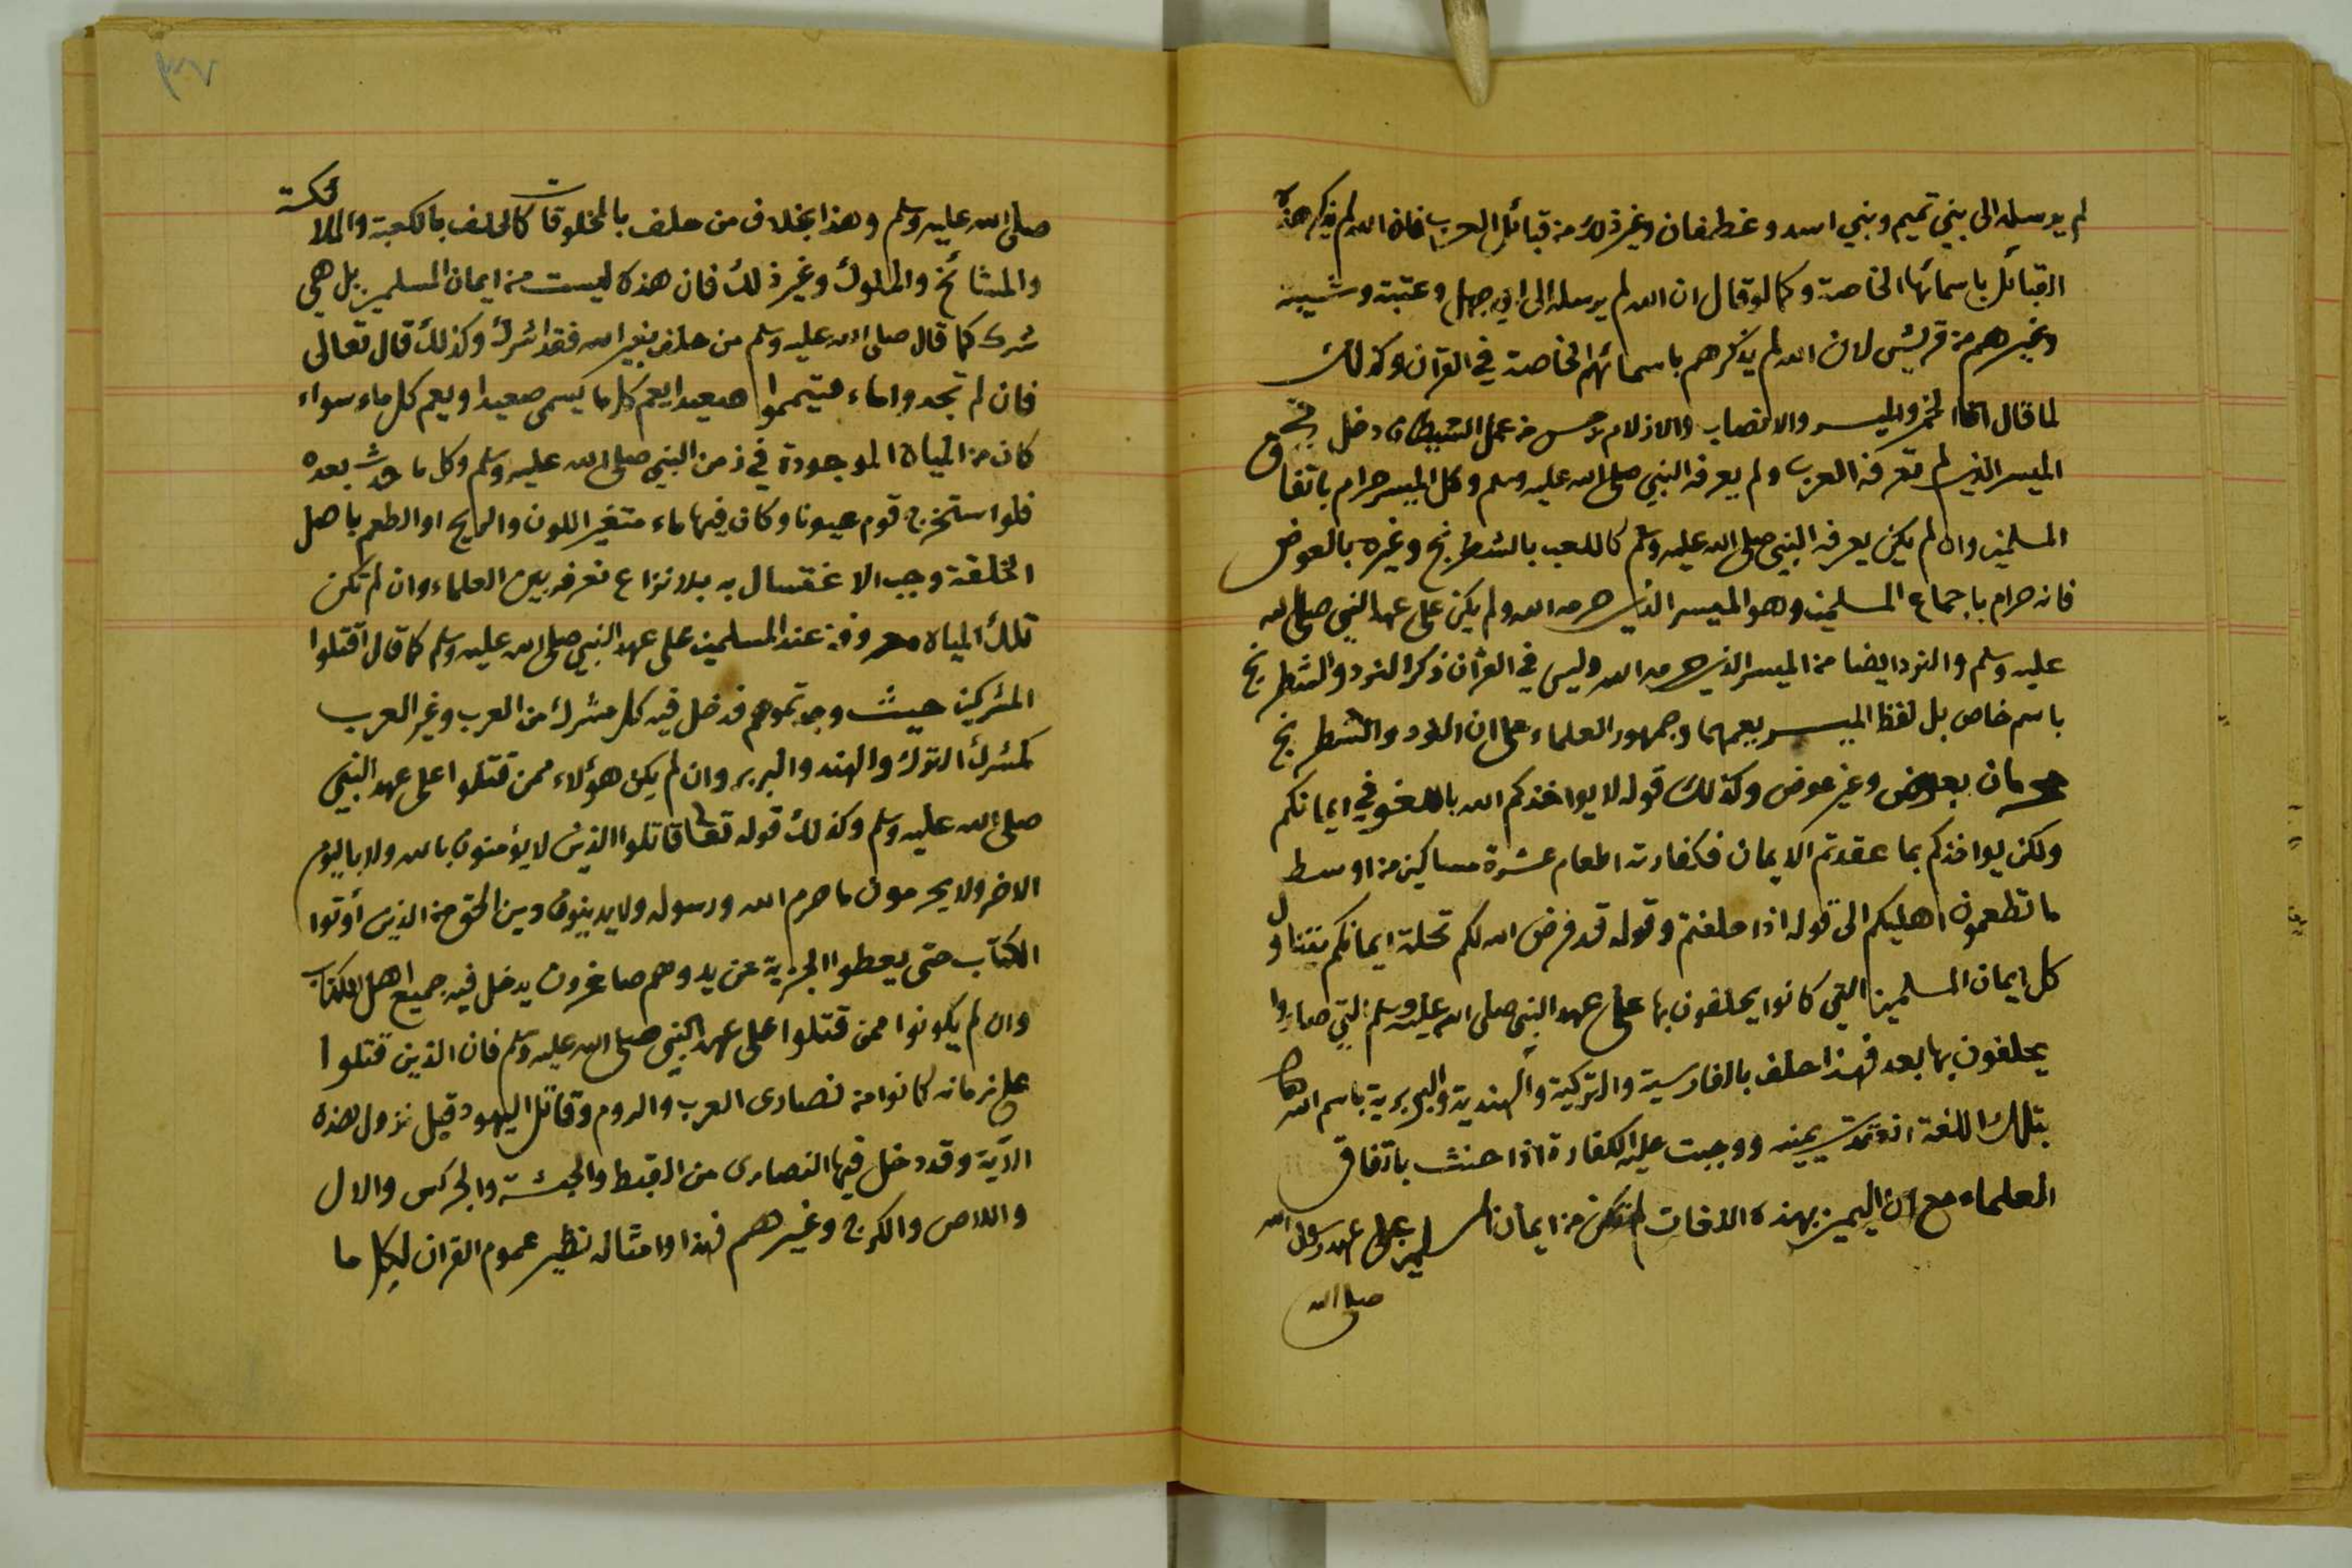 لم يرسله الى بني تميم وبني اسد وغطفان وغير ذلك من قبائل العرب فان الله لم يذكر هذه
القبائل باسمائها الخاصة وكما لو قال ان الله لم يرسله الى ابي جهل وعتبة وشيبة
وغيرهم من قريش لان الله لم يذكرهم باسمائهم الخاصة في القرآن وكذلك
لما قال انما الخمر والميسر والانصاب والازلام رجس من عمل الشيطان دخل في
الميسر الذي لم تعرفه العرب ولم يعرفه النبي صلى الله عليه وسلم وكل الميسر حرام باتفاق
المسلمين وان لم يكن يعرفه النبي صلى الله عليه وسلم كاللعب بالشطرنج وغيره بالعوض
فانه حرام باجماع المسلمين وهو الميسر الذي حرمه الله ولم يكن على عهد النبي صلى الله
عليه وسلم والنرد ايضا من الميسر الذي حرمه الله وليس في القرآن ذكر النرد والشطرنج
باسم خاص بل لفظ الميسر يعمهما وجمهور العلماء على ان النرد والشطرنج
محرمان بعوض وغير عوض وكذلك قوله لا يواخذكم الله باللغو في ايمانكم
ولكن يواخذكم بما عقدتم الايمان فكفارته اطعام عشرة مساكين من اوسط
ما تطعمون اهليكم الى قوله اذا حلفتم وقوله قد فرض الله لكم تحلة ايمانكم يتناول
كل ايمان المسلمين التي كانوا يحلفون بها على عهد النبي صلى الله عليه وسلم التي صاروا
يحلفون بها بعد فهذا حلف بالفارسية والتركية والهندية والبربرية باسم الله
بتلك اللغة انعقدت يمينه ووجبت عليه الكفارة اذا حنث باتفاق
العلماء مع ان اليمين بهذه اللغات لم تكن من ايمان المسلمين على عهد رسول الله
صلى الله
صلى الله عليه وسلم وهذا بخلاف من حلف بالمخلوقات كالحلف بالكعبة والملائكة
والمشائخ والملوك وغير ذلك فان هذه ليست من ايمان المسلمين بل هي
شرك كما قال صلى الله عليه وسلم من حلف بغير الله فقد اشرك وكذلك قال تعالى
فان لم تجدوا ماء فتيمموا صعيدا يعم كل ما يسمى صعيدا ويعم كل ماء سواء
كان من المياه الموجودة في زمن النبي صلى الله عليه وسلم وكل ما حدث بعده
فلو استخرج قوم عيونا وكان فيها ماء متغير اللون والريح او الطعم باصل
الخلقة وجب الاغتسال به بلا نزاع نعرفه بين العلماء وان لم تكن
تلك المياه معروفة عند المسلمين على عهد النبي صلى الله عليه وسلم كما قال اقتلوا
المشركين حيث وجدتموهم فدخل فيه كل مشرك من العرب وغير العرب
كمشرك الترك والهند والبربر وان لم يكن هؤلاء ممن قتلوا على عهد النبي
صلى الله عليه وسلم وكذلك قوله تعالى قاتلوا الذين لا يؤمنون بالله ولا باليوم
الاخر ولا يحرمون ما حرم الله ورسوله ولا يدينون دين الحق من الذين أوتوا
الكتاب حتى يعطوا الجزية عن يد وهم صاغرون يدخل فيه جميع اهل الكتاب
وان لم يكونوا ممن قتلوا على عهد النبي صلى الله عليه وسلم فان الذين قتلوا
على زمانه كانوا من نصارى العرب والروم وقاتل اليهود قبل نزول هذه
الآية وقد دخل فيها النصارى من القبط والحبشة والجركس والال
واللاص والكرج وغيرهم فهذا وامثاله نظير عموم القران لكل ما